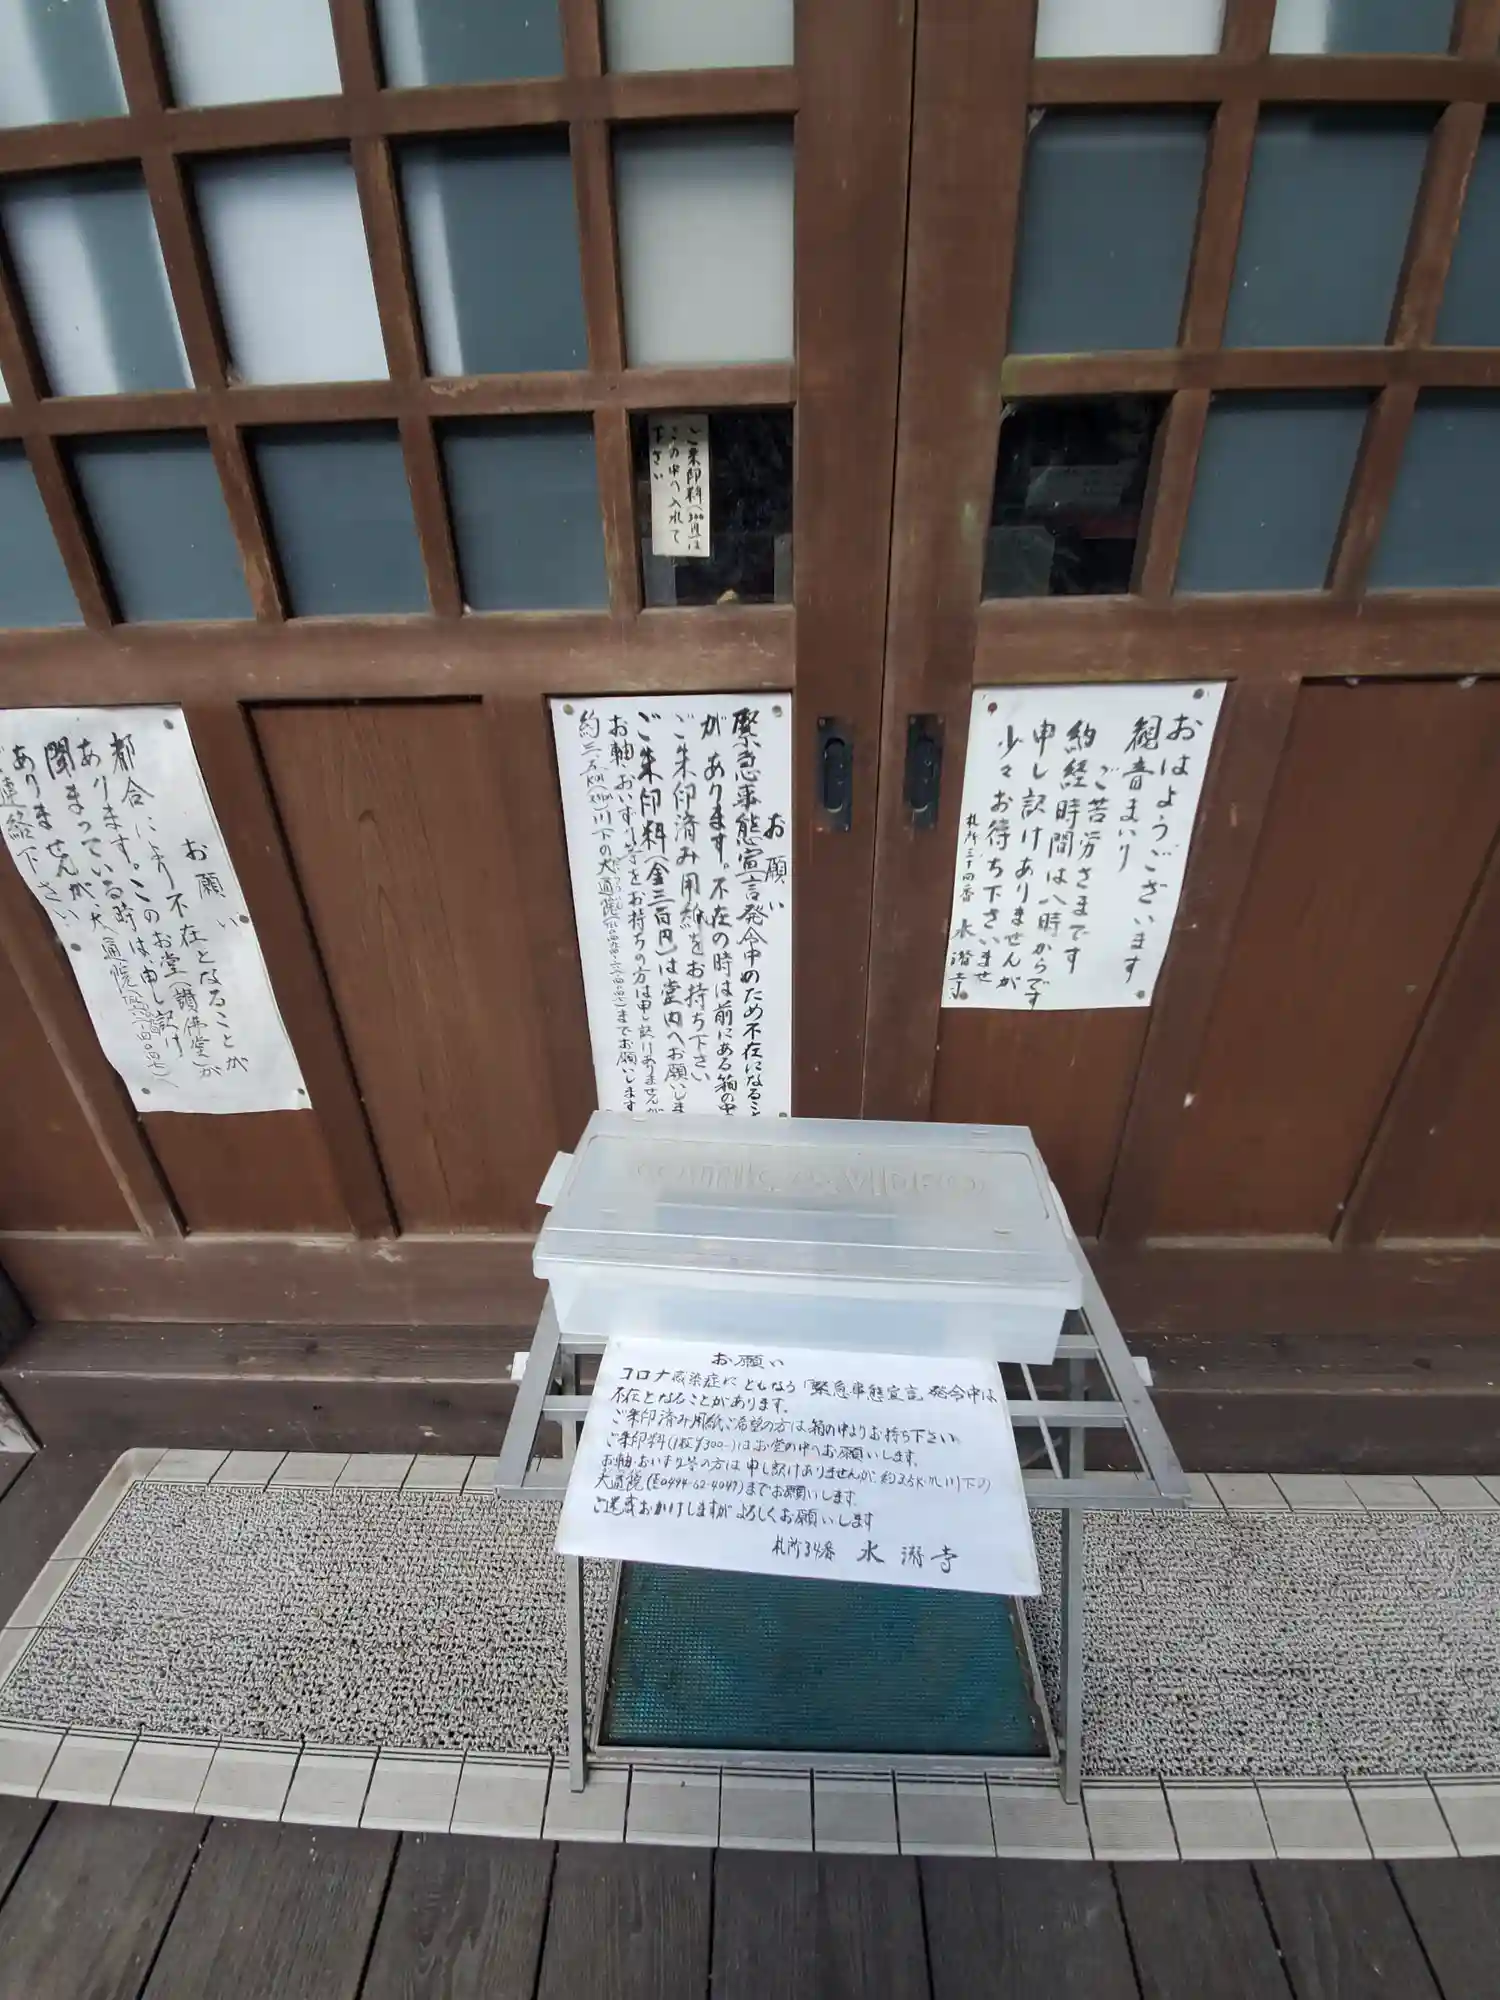 ご朱印料(300円)は
この中へ入れて
下さい
おはようございます
観音まいり
ご苦労さまです
納経時間は八時からです
申し訳けありませんが
少々お待ち下さいませ
札所三十四番 水潜寺
お願い
緊急事態宣言発令中のため不在になること
があります。不在の時は前にある箱の中
ご朱印済み用紙をお持ち下さい
ご朱印料(金三百円)は堂内へお願いしま
お軸、おいずり等をお持ちの方は申し訳けありませんが
約三.五km川下の大通院までお願いします
お願い
都合により不在となることが
あります。このお堂(讃佛堂)が
閉まっている時は申し訳け
ありませんが、大通院
ご連絡下さい
COMIC & VIDEO
お願い
コロナ感染症にともなう「緊急事態宣言」発令中は
不在となることがあります。
ご朱印済み用紙ご希望の方は箱の中よりお持ち下さい。
ご朱印料(1枚¥300-)はお堂の中へお願いします。
お軸・おいずり等の方は申し訳けありませんが、約3.5K川下の
大通院(☎0494-62-4047)までお願いします。
ご迷惑おかけしますがよろしくお願いします
札所34番 水潜寺